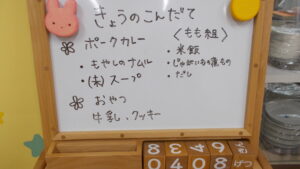 きょうのこんだて
ポークカレー
・もやしのナムル
・(未)スープ
おやつ
牛乳、クッキー
〈もも組〉
・米飯
・じゃがいもの煮もの
・だし
8 0 4 3
0 4 0 8 げつ